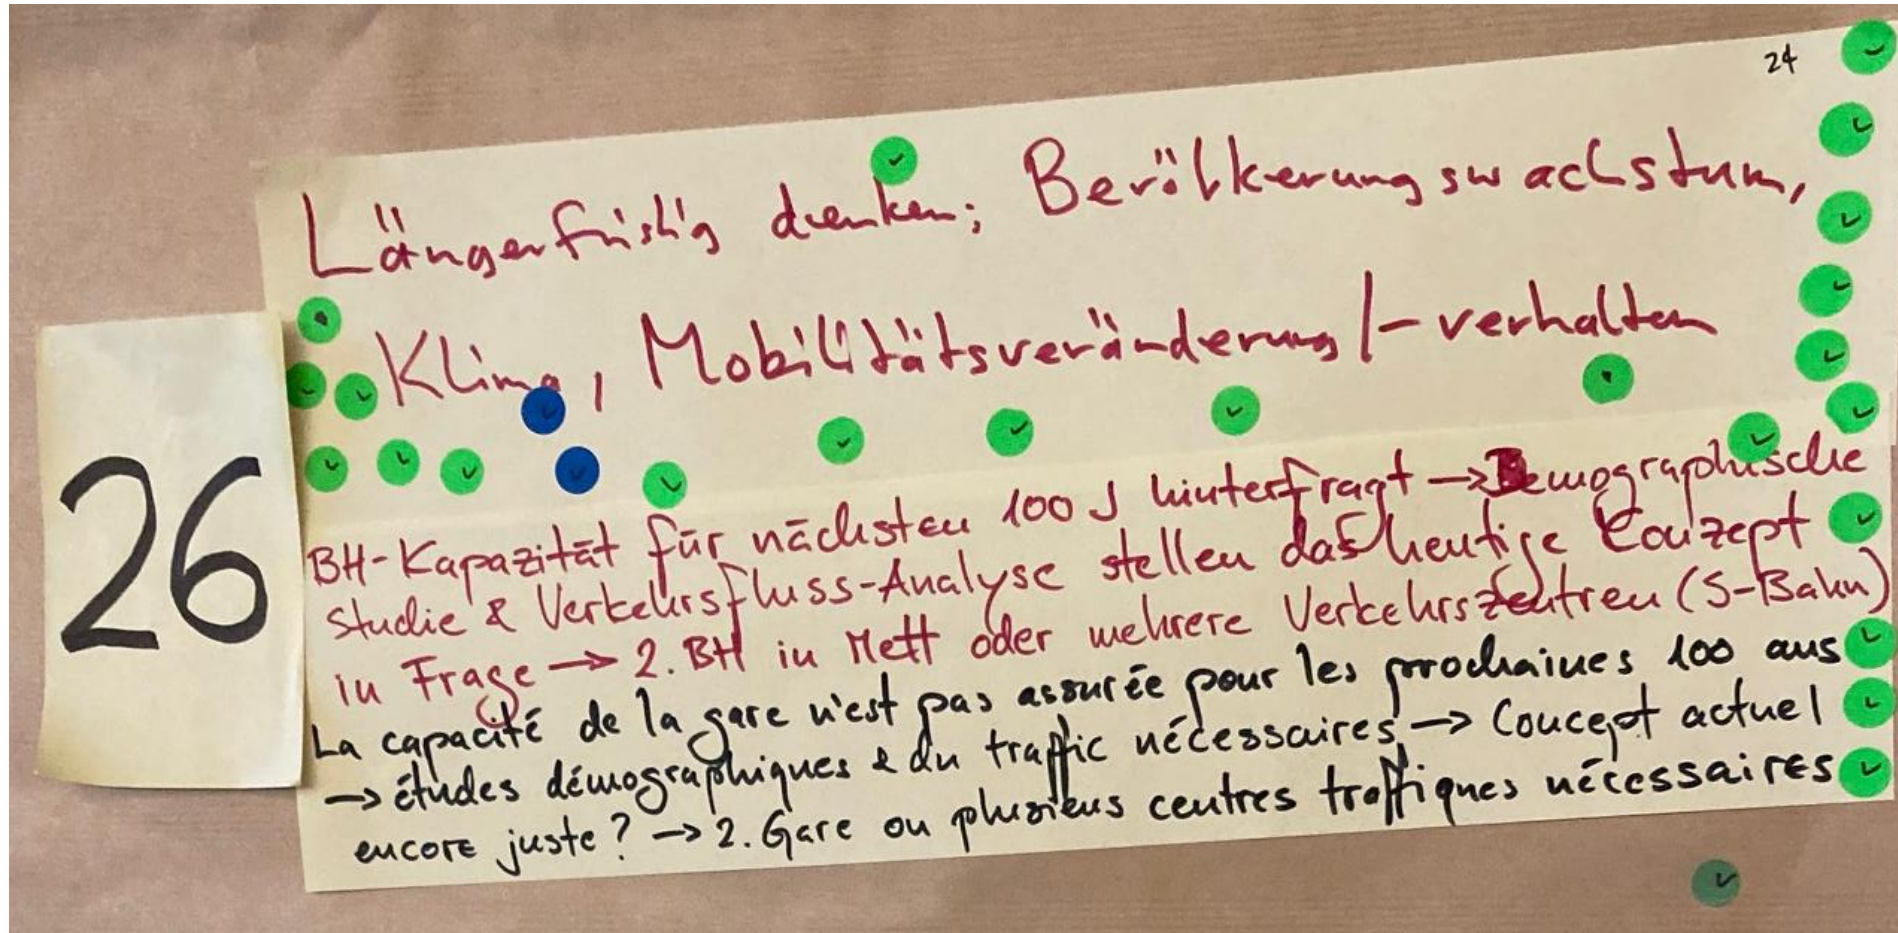 24
Längerfristig denken; Bevölkerungswachstum,
Klima, Mobilitätsveränderung/-verhalten
26
BH-Kapazität für nächsten 100 J hinterfragt → Demographische
Studie & Verkehrsfluss-Analyse stellen das heutige Conzept
in Frage → 2. BH in Mett oder mehrere Verkehrszentren (S-Bahn)
La capacité de la gare n'est pas assurée pour les prochaines 100 ans
→ études démographiques & du traffic nécessaires → Concept actuel
encore juste? → 2. Gare ou plusieus centres traffiques nécessaires